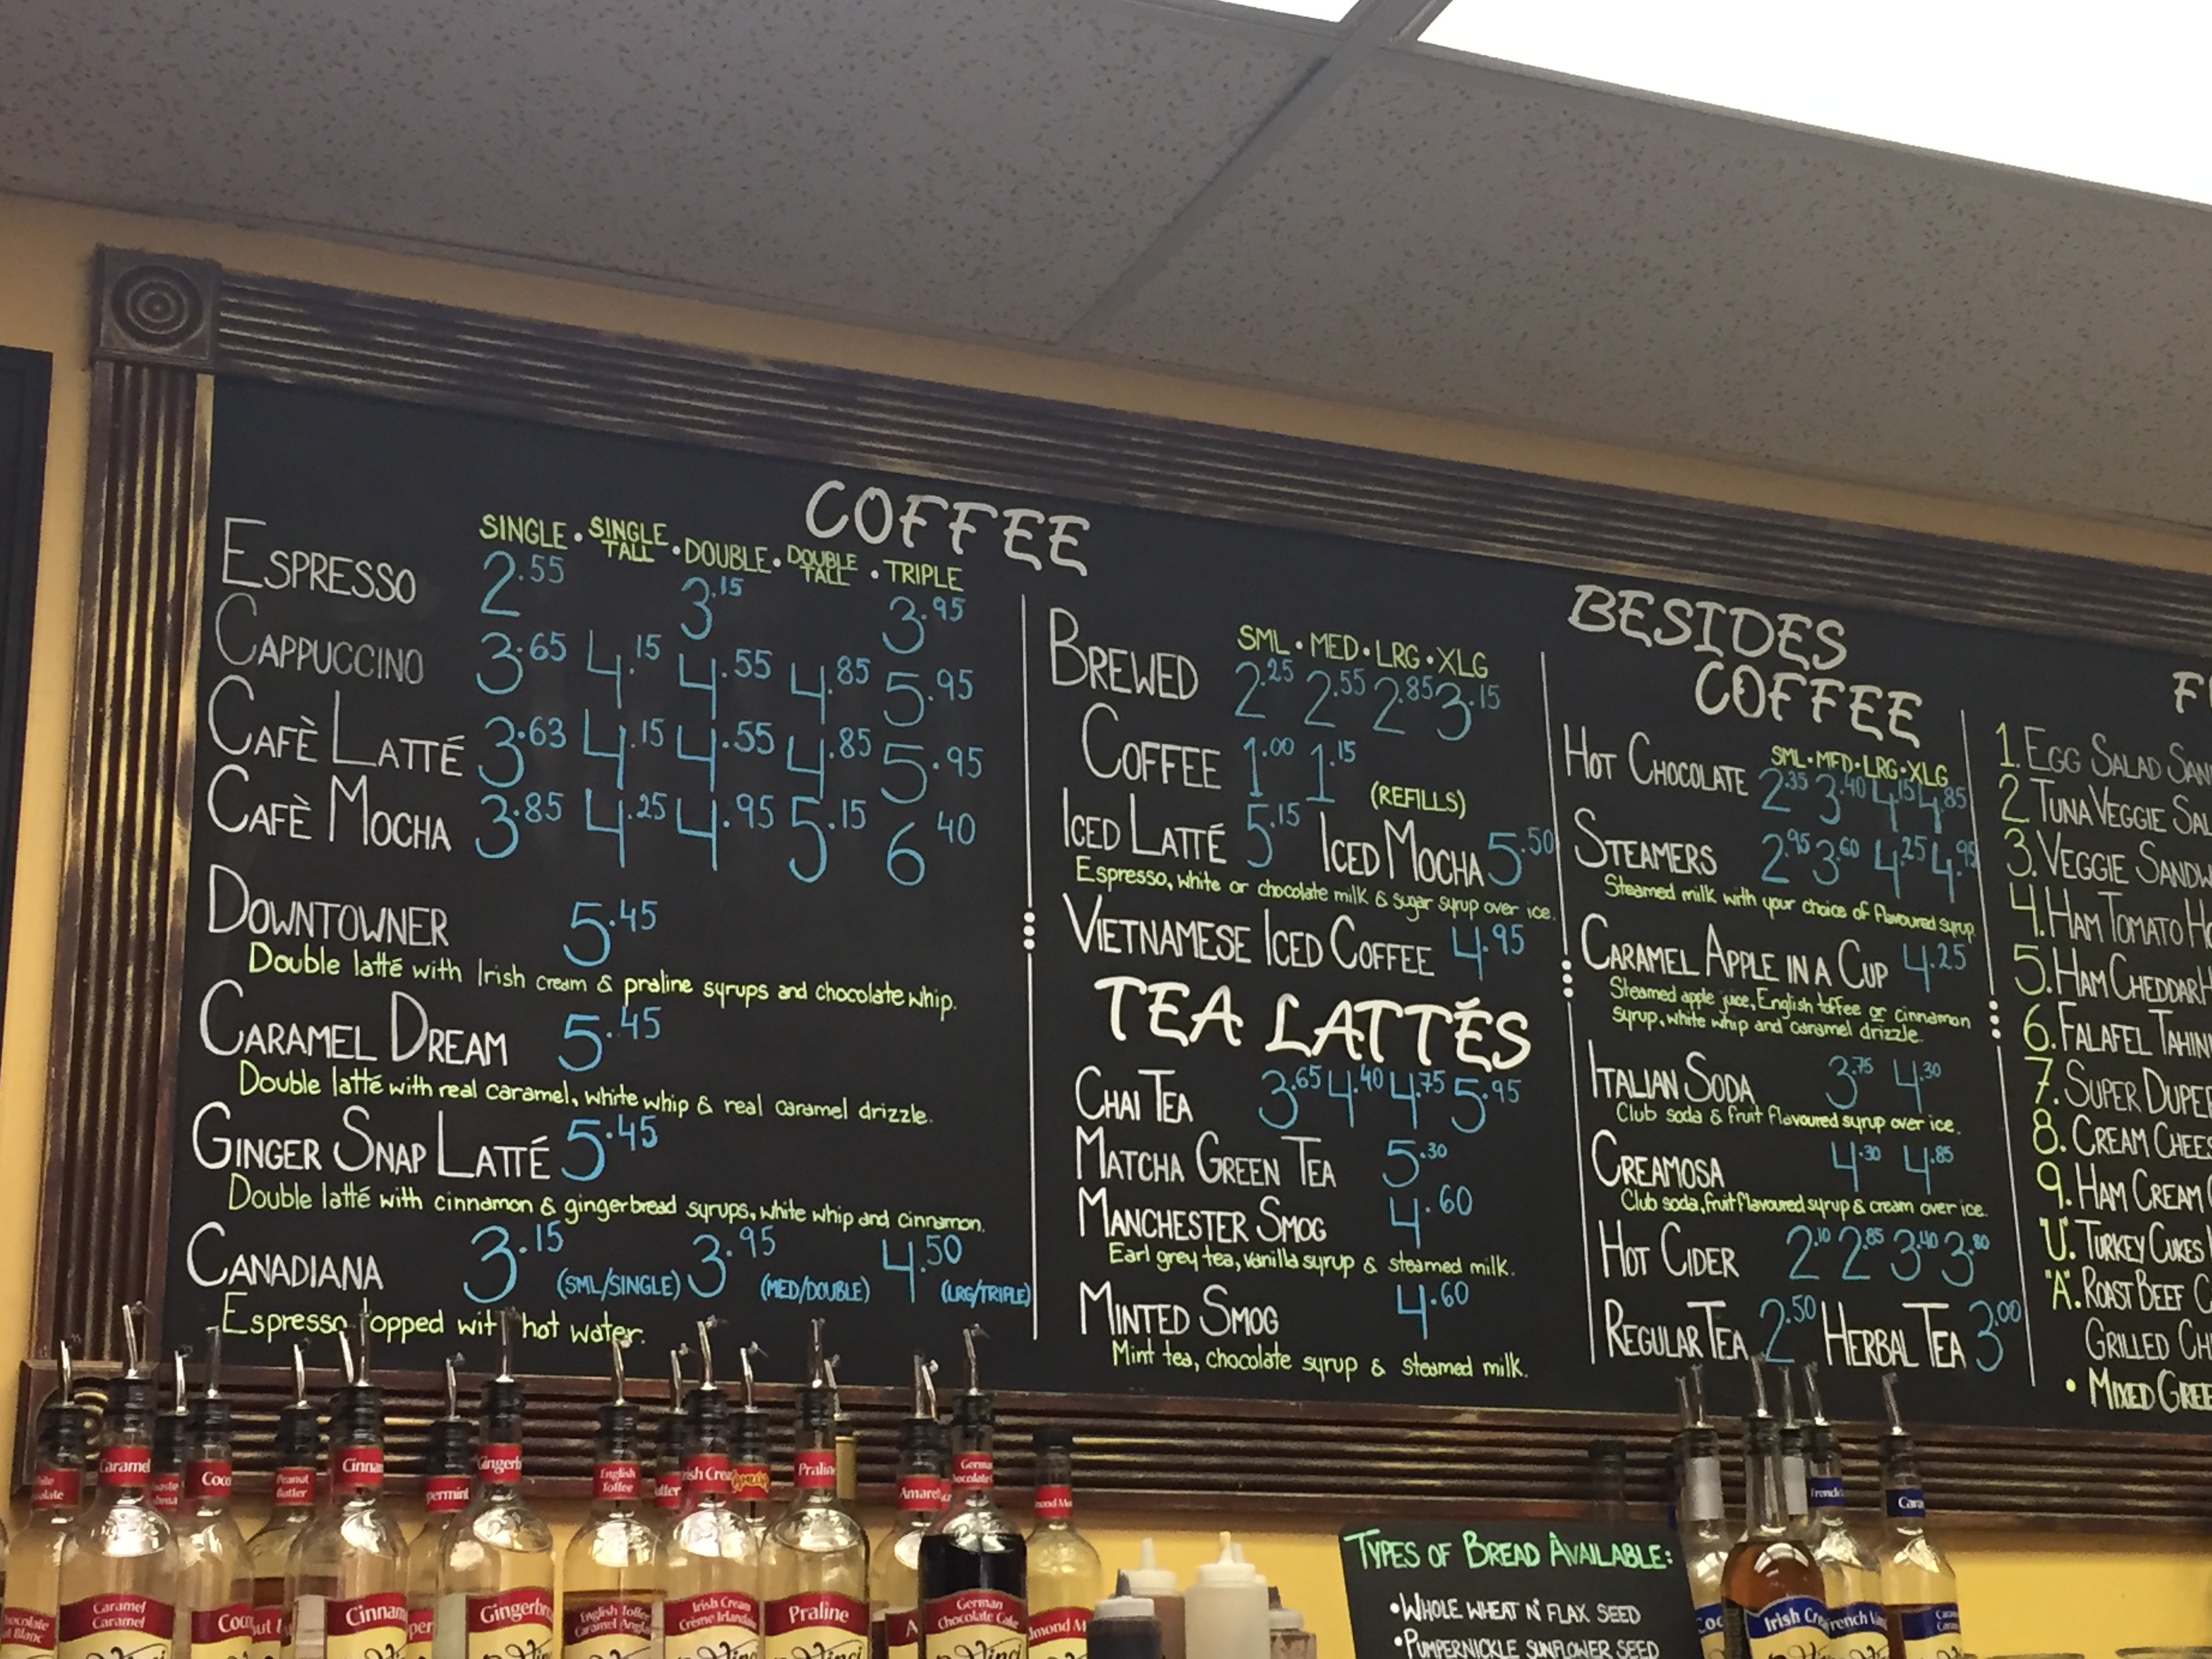 COFFEE
SINGLE • SINGLE TALL • DOUBLE • DOUBLE TALL • TRIPLE
ESPRESSO 2.55 3.15 3.95
CAPPUCCINO 3.65 4.15 4.55 4.85 5.95
CAFÈ LATTÉ 3.63 4.15 4.55 4.85 5.95
CAFÈ MOCHA 3.85 4.25 4.95 5.15 6.40
DOWNTOWNER 5.45
Double latté with Irish cream & praline syrups and chocolate whip.
CARAMEL DREAM 5.45
Double latté with real caramel, white whip & real caramel drizzle.
GINGER SNAP LATTÉ 5.45
Double latté with cinnamon & gingerbread syrups, white whip and cinnamon.
CANADIANA 3.15 (SML/SINGLE) 3.95 (MED/DOUBLE) 4.50 (LRG/TRIPLE)
Espresso topped with hot water.
SML • MED • LRG • XLG
BREWED 2.25 2.55 2.85 3.15
COFFEE 1.00 1.15 (REFILLS)
ICED LATTÉ 5.15 ICED MOCHA 5.50
Espresso, white or chocolate milk & sugar syrup over ice.
VIETNAMESE ICED COFFEE 4.95
TEA LATTÉS
CHAI TEA 3.65 4.40 4.75 5.95
MATCHA GREEN TEA 5.30
MANCHESTER SMOG 4.60
Earl grey tea, vanilla syrup & steamed milk.
MINTED SMOG 4.60
Mint tea, chocolate syrup & steamed milk.
BESIDES
COFFEE
SML • MED • LRG • XLG
HOT CHOCOLATE 2.35 3.40 4.15 4.85
STEAMERS 2.95 3.60 4.25 4.95
Steamed milk with your choice of flavoured syrup.
CARAMEL APPLE IN A CUP 4.25
Steamed apple juice, English toffee or cinnamon
syrup, white whip and caramel drizzle.
ITALIAN SODA 3.75 4.30
Club soda & fruit flavoured syrup over ice.
CREAMOSA 4.30 4.85
Club soda, fruit flavoured syrup & cream over ice.
HOT CIDER 2.10 2.85 3.40 3.80
REGULAR TEA 2.50 HERBAL TEA 3.00
1. EGG SALAD
2 TUNA VEGGIE
3. VEGGIE
4. HAM TOMATO
5. HAM CHEDDAR
6. FALAFEL TAHINI
7. SUPER DUPER
8. CREAM
9. HAM CREAM
"U". TURKEY CUKES
"A". ROAST BEEF
GRILLED
• MIXED
TYPES OF BREAD AVAILABLE:
• WHOLE WHEAT N' FLAX SEED
• PUMPERNICKLE SUNFLOWER SEED
Caramel
Peanut
English
Toffee
Caramel
Caramel
English Toffee
Irish Cream
Crème Irlandaise
Praline
German
Chocolate Cake
Irish